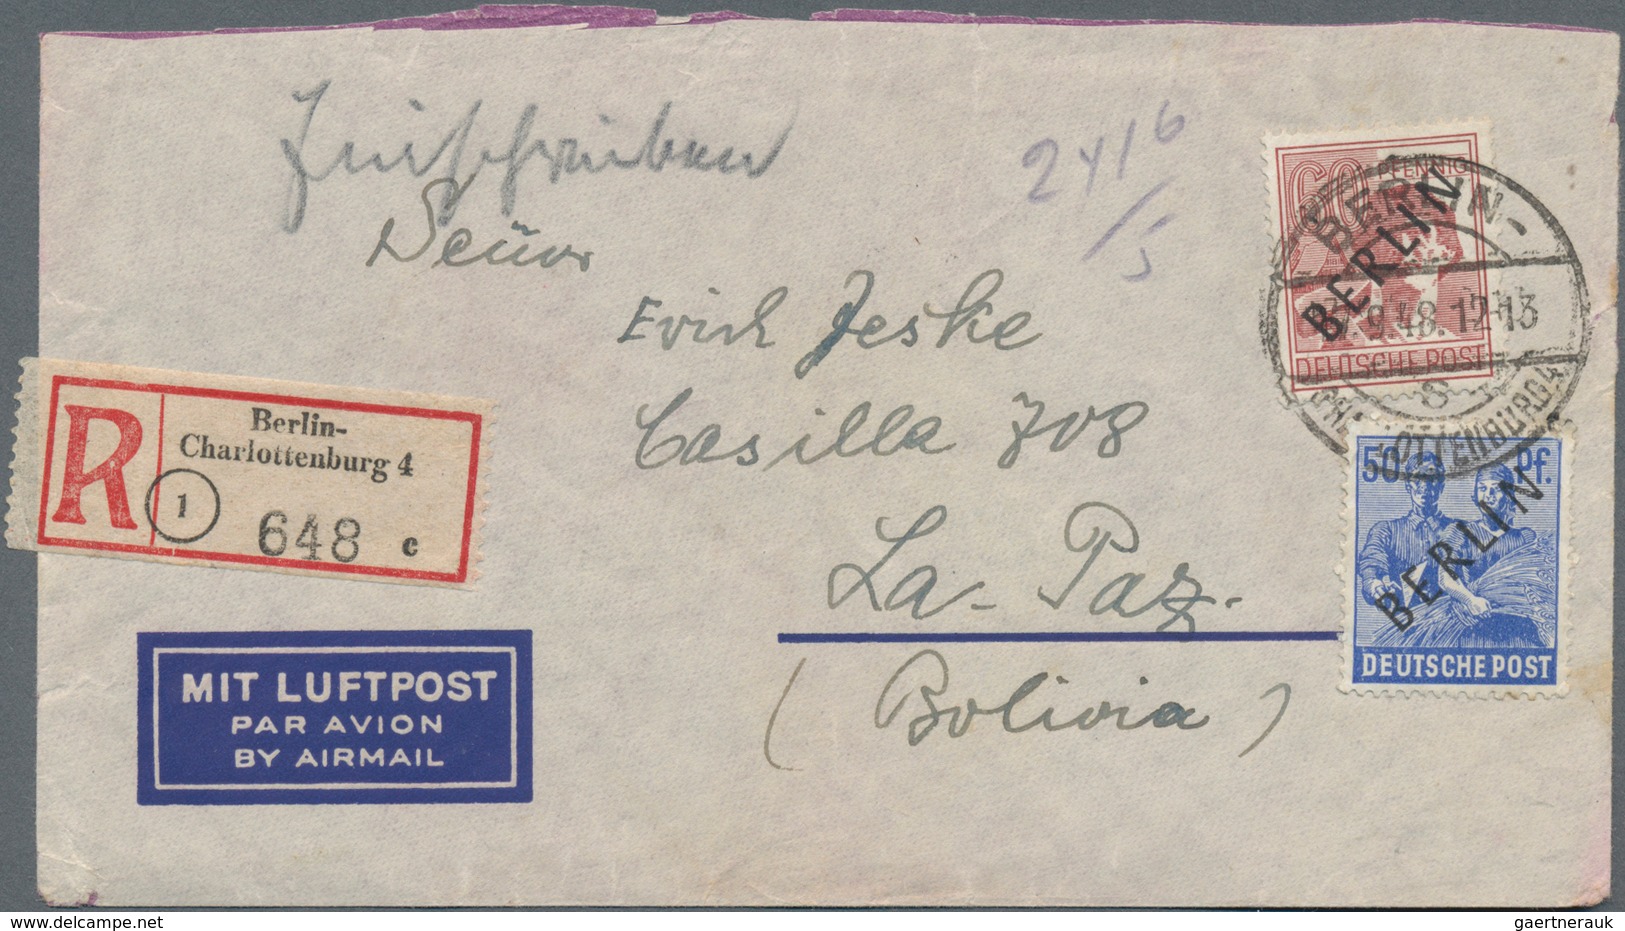 Einschreiben
2416
/5
Señor
Erich Jeske
Casilla 708
La-Paz.
(Bolivia)
R
Berlin-
Charlottenburg 4
1
648 c
MIT LUFTPOST
PAR AVION
BY AIRMAIL
60 PFENNIG
BERLIN
DEUTSCHE POST
BERLIN-
9.48.12-13
CHARLOTTENBURG 4
50 Pf.
BERLIN
DEUTSCHE POST
delcampe.net
gaertnerauk